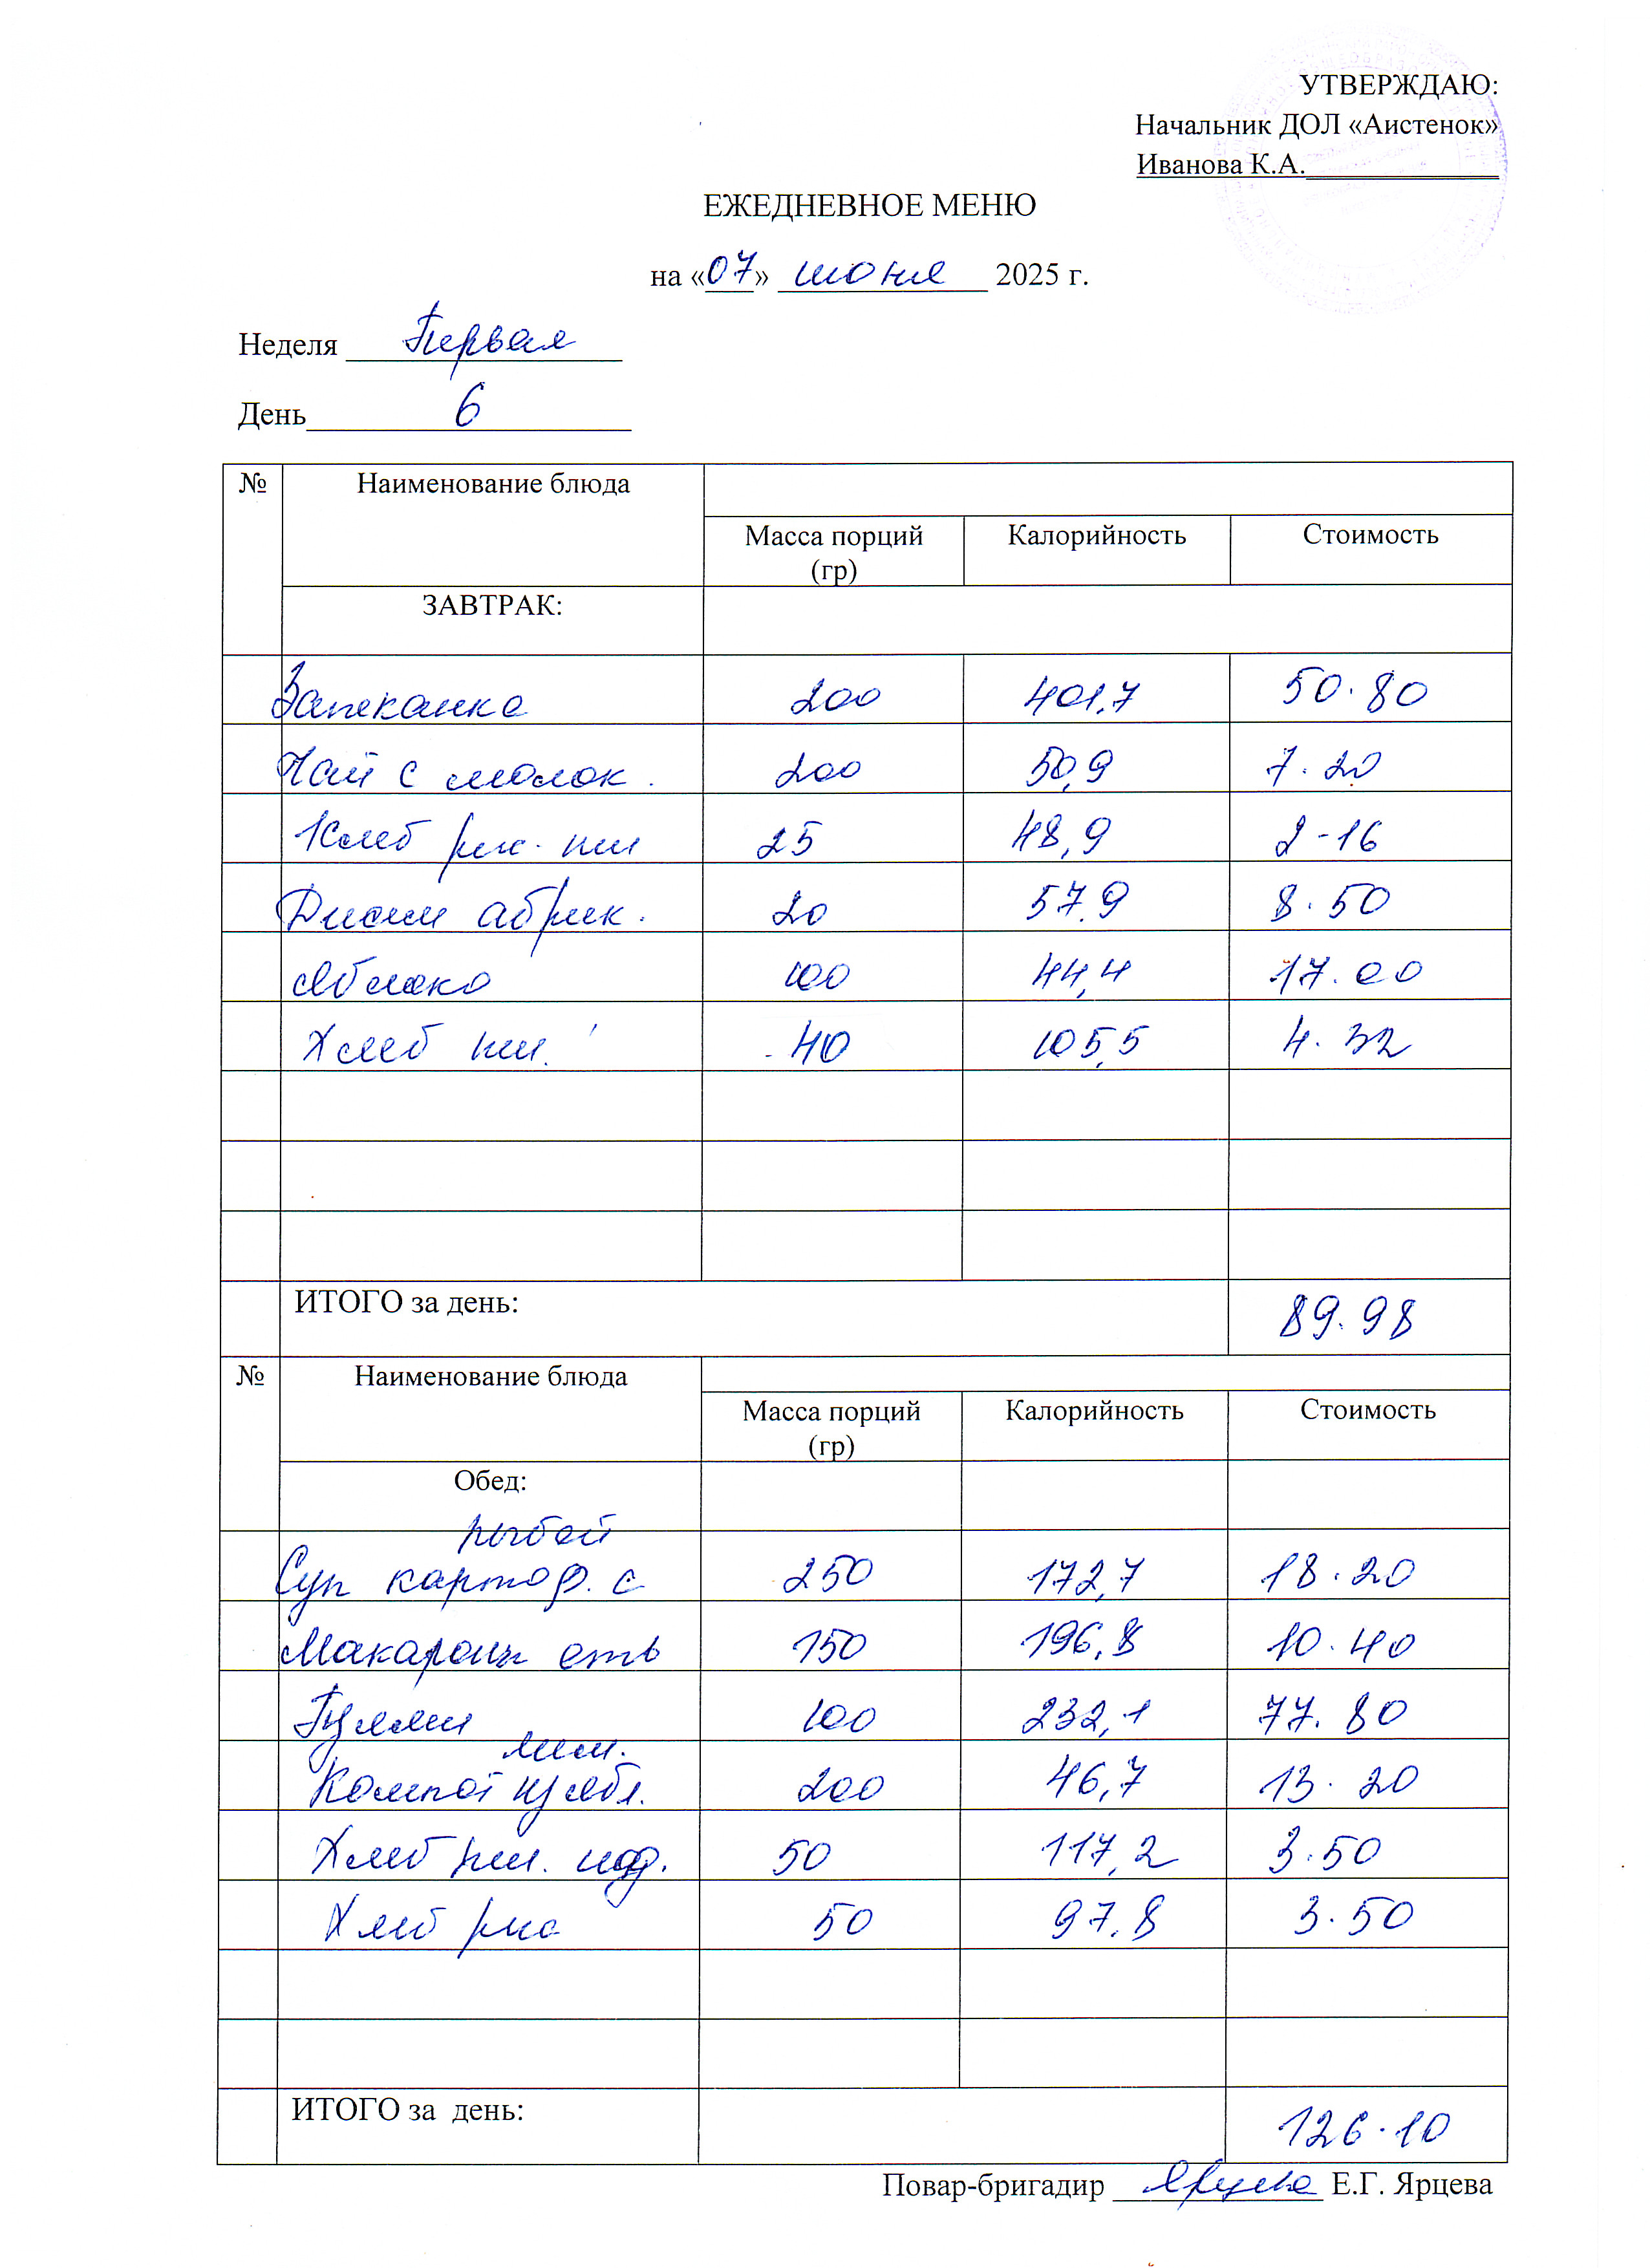 УТВЕРЖДАЮ:
Начальник ДОЛ «Аистенок»
Иванова К.А.
ЕЖЕДНЕВНОЕ МЕНЮ
на «07» июня 2025 г.
Неделя Первая
День 6
№ Наименование блюда
Масса порций (гр) Калорийность Стоимость
ЗАВТРАК:
Запеканка 200 401.7 50.80
Чай с молок. 200 50,9 7.20
Хлеб рж. пш 25 48,9 2-16
Джем абрик. 20 57.9 8.50
Яблоко 100 44,4 17.00
Хлеб пш. 40 105,5 4.32
ИТОГО за день: 89.98
№ Наименование блюда
Масса порций (гр) Калорийность Стоимость
Обед:
рыбой
Суп картоф. с 250 172,7 18.20
Макароны отв 150 196,8 10.40
Гуляш 100 232,1 77.80
лим.
Компот из ябл. 200 46,7 13.20
Хлеб пш. йод. 50 117,2 3.50
Хлеб рж 50 97.8 3.50
ИТОГО за день: 126.10
Повар-бригадир Ярцева Е.Г. Ярцева